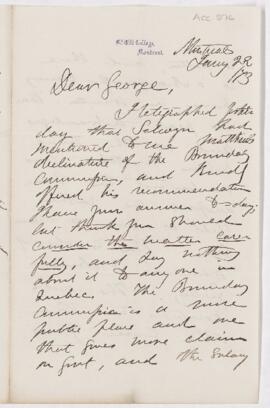 ACC 876
McGill College,
Montreal.
Montreal
Jany 22
/73
Dear George,
I telegraphed yester
day that Selwyn had
mentioned to me
declinature of the Boundary
Commission, and
offered his recommendation
I have your answer to-day
but think you should
consider the matter care
fully, and say nothing
about it to any one in
Quebec. The Boundary
Commission is a more
public place and one
that gives more claim
on Govt, and the Salary